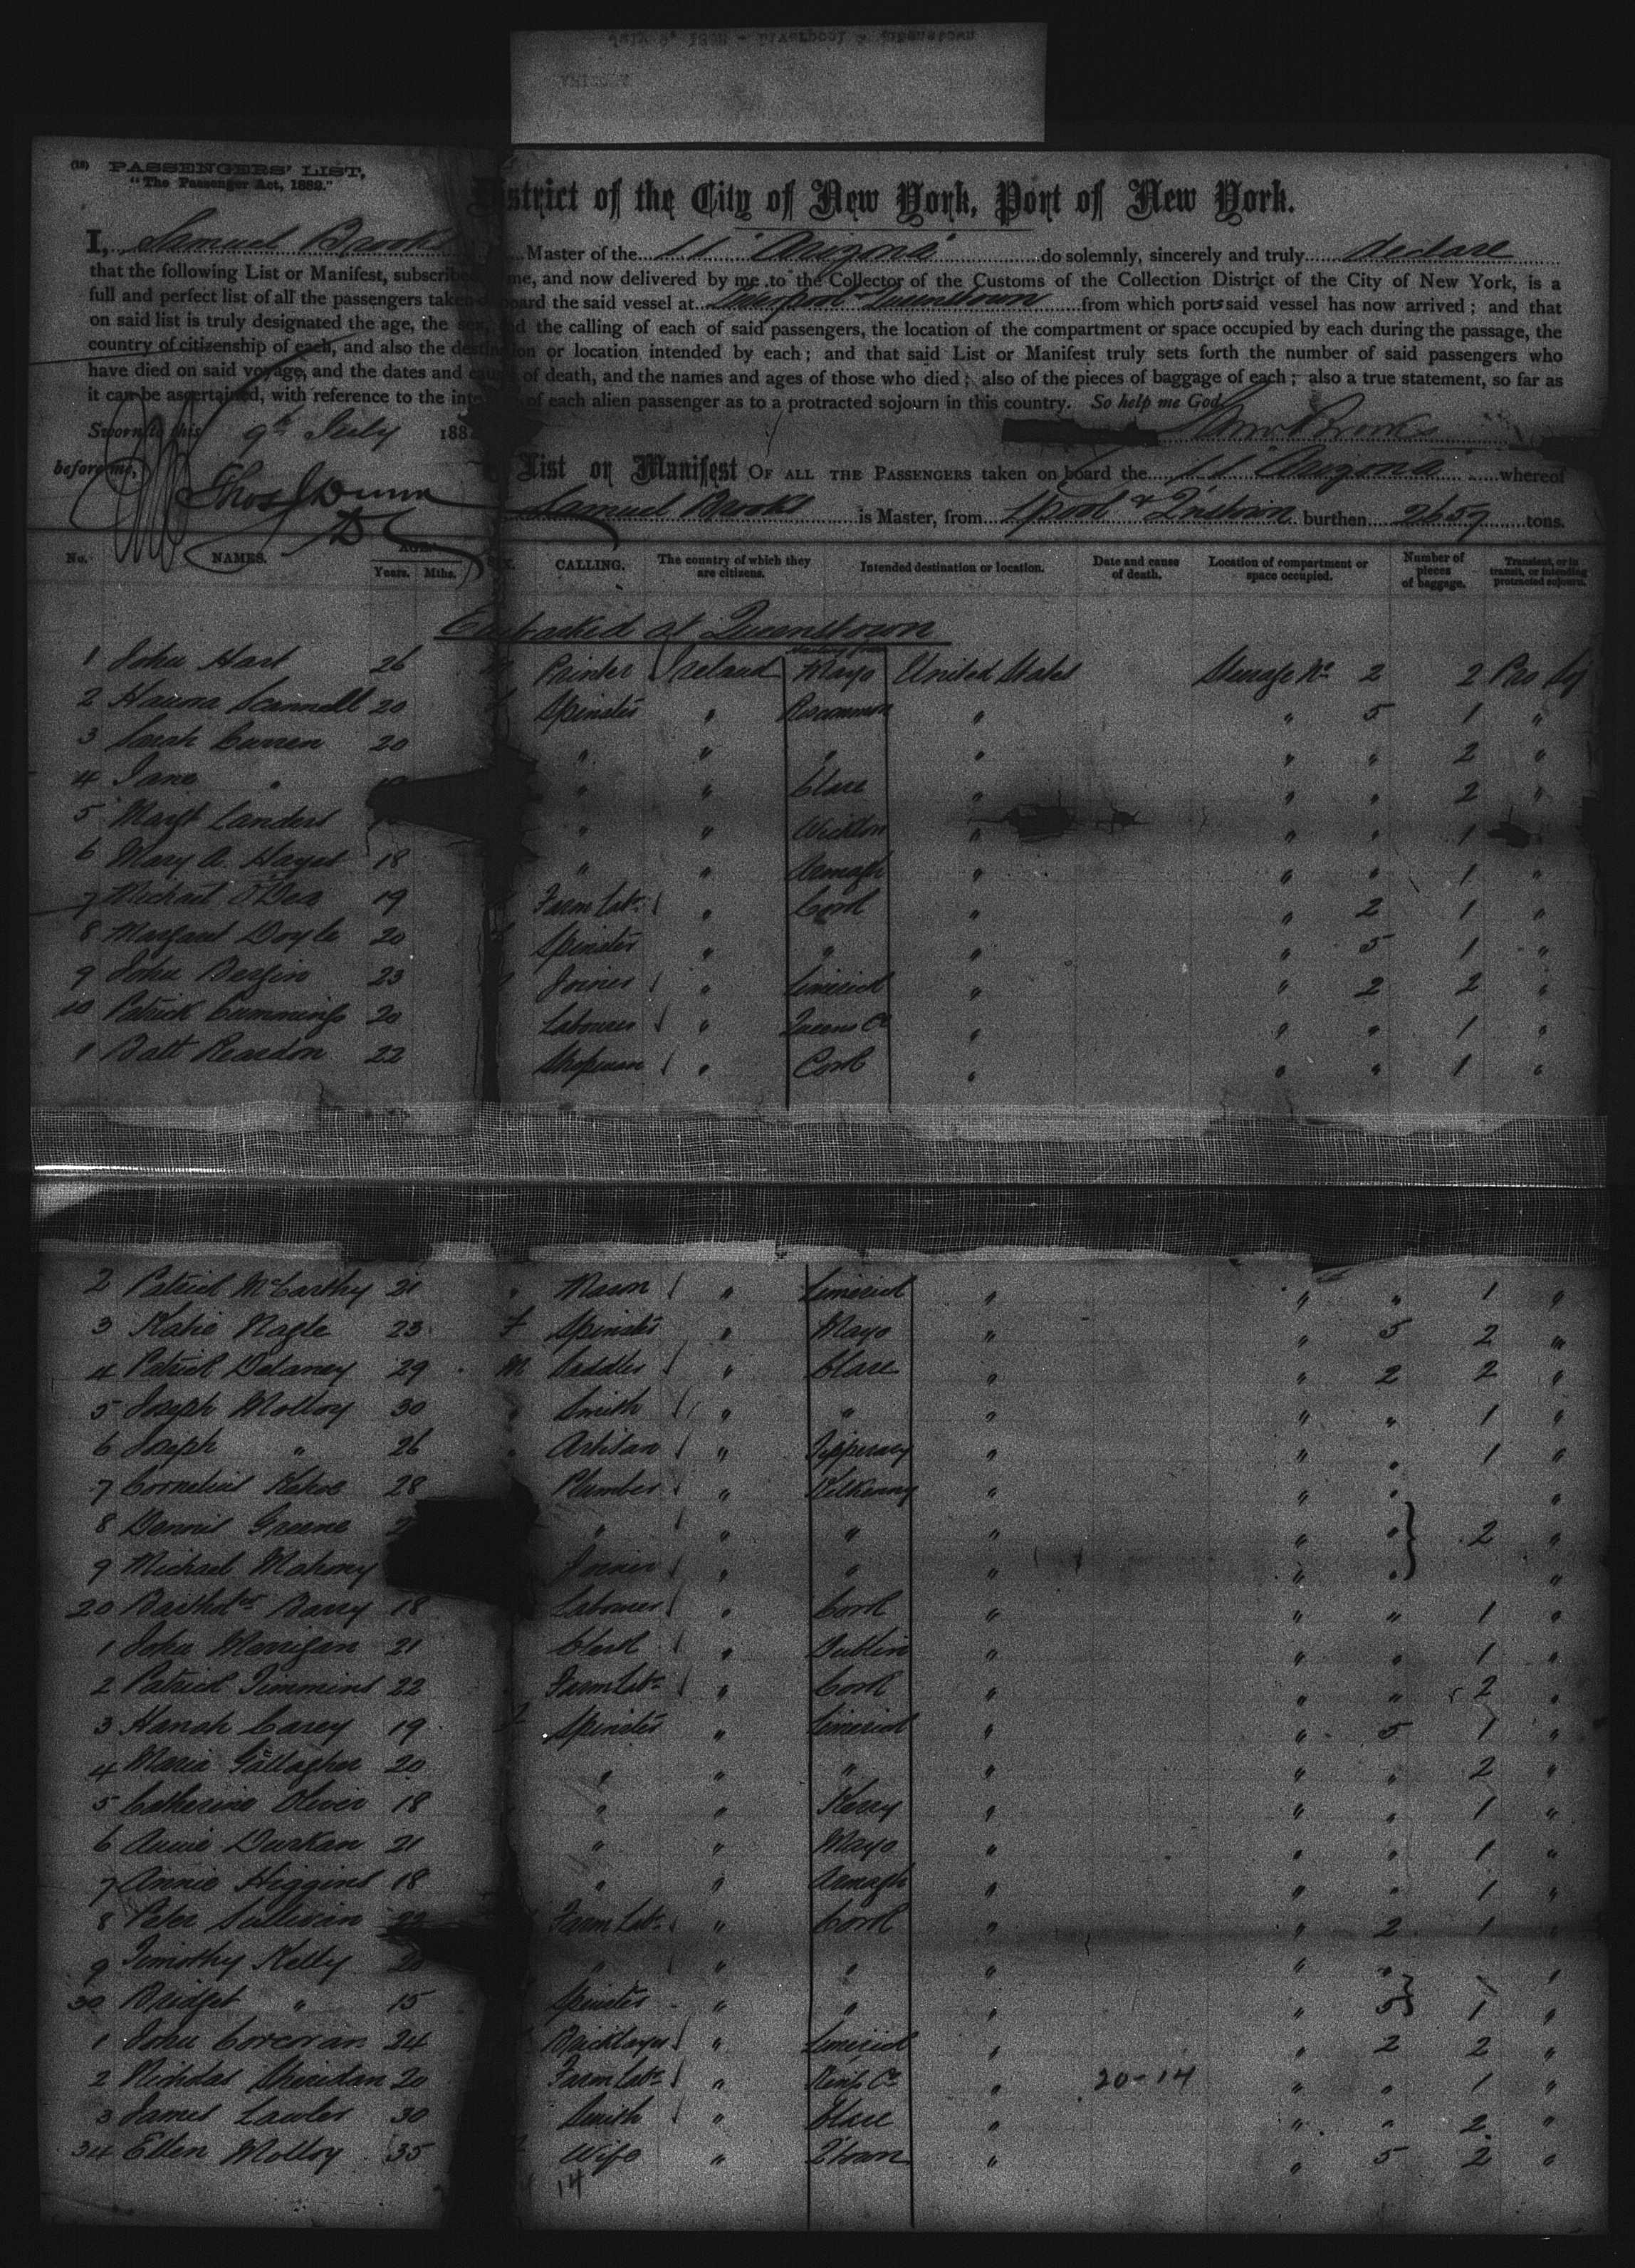 (18) PASSENGERS' LIST,
"The Passenger Act, 1882."
District of the City of New York, Port of New York.
I, Samuel Brooks Master of the SS "Arizona" do solemnly, sincerely and truly declare
that the following List or Manifest, subscribed me, and now delivered by me to the Collector of the Customs of the Collection District of the City of New York, is a
full and perfect list of all the passengers taken board the said vessel at Liverpool & Queenstown from which ports said vessel has now arrived; and that
on said list is truly designated the age, the sex, and the calling of each of said passengers, the location of the compartment or space occupied by each during the passage, the
country of citizenship of each, and also the destination or location intended by each; and that said List or Manifest truly sets forth the number of said passengers who
have died on said voyage, and the dates and cause of death, and the names and ages of those who died; also of the pieces of baggage of each; also a true statement, so far as
it can be ascertained, with reference to the of each alien passenger as to a protracted sojourn in this country. So help me God.
Sworn to this 9th July 188 Saml Brooks
before me, Thos J Dunn
List or Manifest OF ALL THE PASSENGERS taken on board the SS Arizona whereof
Samuel Brooks is Master, from L'pool & Q'nstown burthen tons.
No. NAMES. AGE. Years. Mths. SEX. CALLING. The country of which they are citizens. Intended destination or location. Date and cause of death. Location of compartment or space occupied. Number of pieces of baggage. Transient, or in transit, or intending protracted sojourn.
Embarked at Queenstown
1 John Hart 26 Printer Ireland Mayo United States Steerage No 2 2 Pro Soj
2 Hanna Scannell 20 Spinster " Roscommon " " 5 1 "
3 Sarah Curren 20 " " " " " " 2 "
4 Jane " " " Clare " " " 2 "
5 Margt Landers " " Wicklow " " " 1
6 Mary A. Hayes 18 " " Armagh " " " 1 "
7 Michael O'Dea 19 Farm Labr " Cork " " 2 1 "
8 Margaret Doyle 20 Spinster " " " " 5 1 "
9 John Bergin 23 Joiner " Limerick " " 2 2 "
10 Patrick Cummings 20 Labourer " Queens Co " " " 1 "
1 Batt Reardon 22 Shopman " Cork " " " 1 "
2 Patrick McCarthy 21 " Mason " Limerick " " " 1 "
3 Katie Nagle 23 F Spinster " Mayo " " 5 2 "
4 Patrick Delaney 29 M Saddler " Clare " " 2 2 "
5 Joseph Molloy 30 " Smith " " " " " 1 "
6 Joseph " 26 " Artisan " Tipperary " " " 1 "
7 Cornelius Kehoe 28 Plumber " Kilkenny " " " "
8 Dennis Greene " " " " " " 2 "
9 Michael Mahony Joiner " " " " " "
20 Bartholw Barry 18 Labourer " Cork " " " 1 "
1 John Merrigan 21 Clerk " Dublin " " " 1 "
2 Patrick Timmins 22 Farm Labr " Cork " " " 2 "
3 Hanah Carey 19 F Spinster " Limerick " " 5 1 "
4 Maria Gallagher 20 " " " " " " 2 "
5 Catherine Oliver 18 " " Kerry " " " 1 "
6 Annie Durkan 21 " " Mayo " " " 1 "
7 Annie Higgins 18 " " Armagh " " " 1 "
8 Peter Sullivan 22 Farm Labr " Cork " " 2 1 "
9 Timothy Kelly 20 " " " " " " "
30 Bridget " 15 Spinster " " " " 5 1 "
1 John Corcoran 24 Bricklayer " Limerick " " 2 2 "
2 Nicholas Sheridan 20 Farm Labr " Kings Co " 20-14 " " 1 "
3 James Lawler 30 Smith " Clare " " " 2 "
34 Ellen Molloy 35 Wife " Q'town " " 5 2 "
14